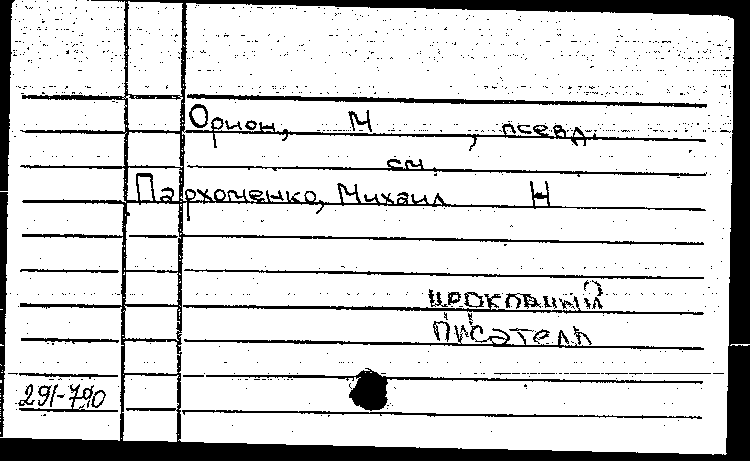 Орион, М , псевд.
см.
Пархоменко, Михаил Н
церковный
писатель
291-790